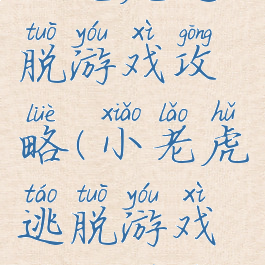 tuō yóu xì gōng
脱游戏攻
lüè xiǎo lǎo hǔ
略(小老虎
táo tuō yóu xì
逃脱游戏